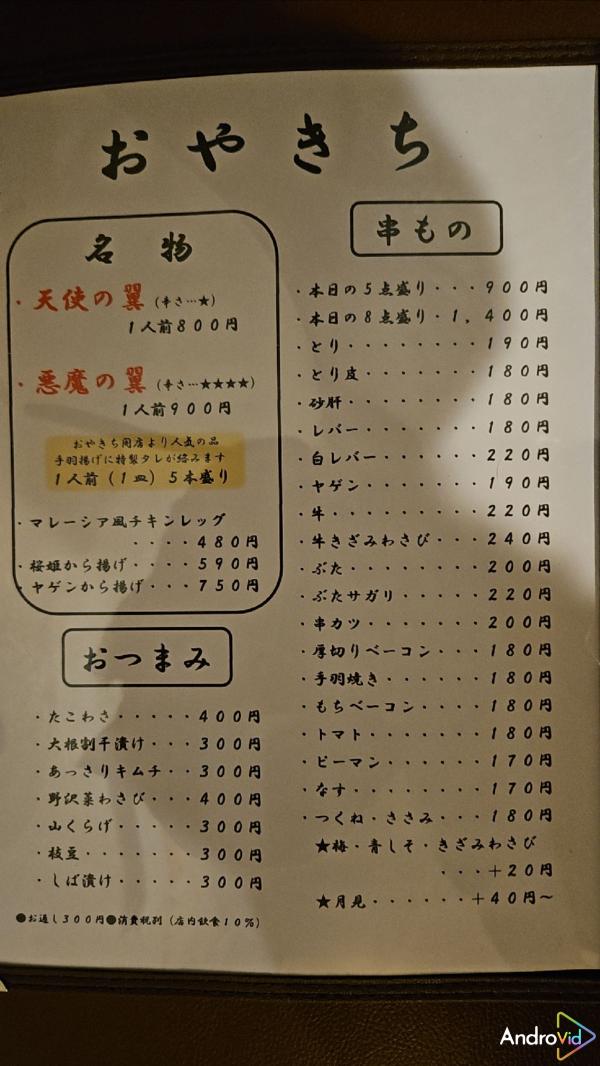 おやきち
名物
・天使の翼(辛さ…★)
1人前800円
・悪魔の翼(辛さ…★★★★)
1人前900円
おやきち開店より人気の品
手羽揚げに特製タレが絡みます
1人前(1皿)5本盛り
・マレーシア風チキンレッグ
・・・・480円
・桜姫から揚げ・・・・590円
・ヤゲンから揚げ・・・750円
おつまみ
・たこわさ・・・・・400円
・大根割干漬け・・・300円
・あっさりキムチ・・300円
・野沢菜わさび・・・400円
・山くらげ・・・・・300円
・枝豆・・・・・・・300円
・しば漬け・・・・・300円
●お通し300円●消費税別(店内飲食10%)
串もの
・本日の5点盛り・・・900円
・本日の8点盛り・1,400円
・とり・・・・・・・・190円
・とり皮・・・・・・・180円
・砂肝・・・・・・・・180円
・レバー・・・・・・・180円
・白レバー・・・・・・220円
・ヤゲン・・・・・・・190円
・牛・・・・・・・・・220円
・牛きざみわさび・・・240円
・ぶた・・・・・・・・200円
・ぶたサガリ・・・・・220円
・串カツ・・・・・・・200円
・厚切りベーコン・・・180円
・手羽焼き・・・・・・180円
・もちベーコン・・・・180円
・トマト・・・・・・・180円
・ピーマン・・・・・・170円
・なす・・・・・・・・170円
・つくね・ささみ・・・180円
★梅・青しそ・きざみわさび
・・・+20円
★月見・・・・・・+40円~
AndroVid